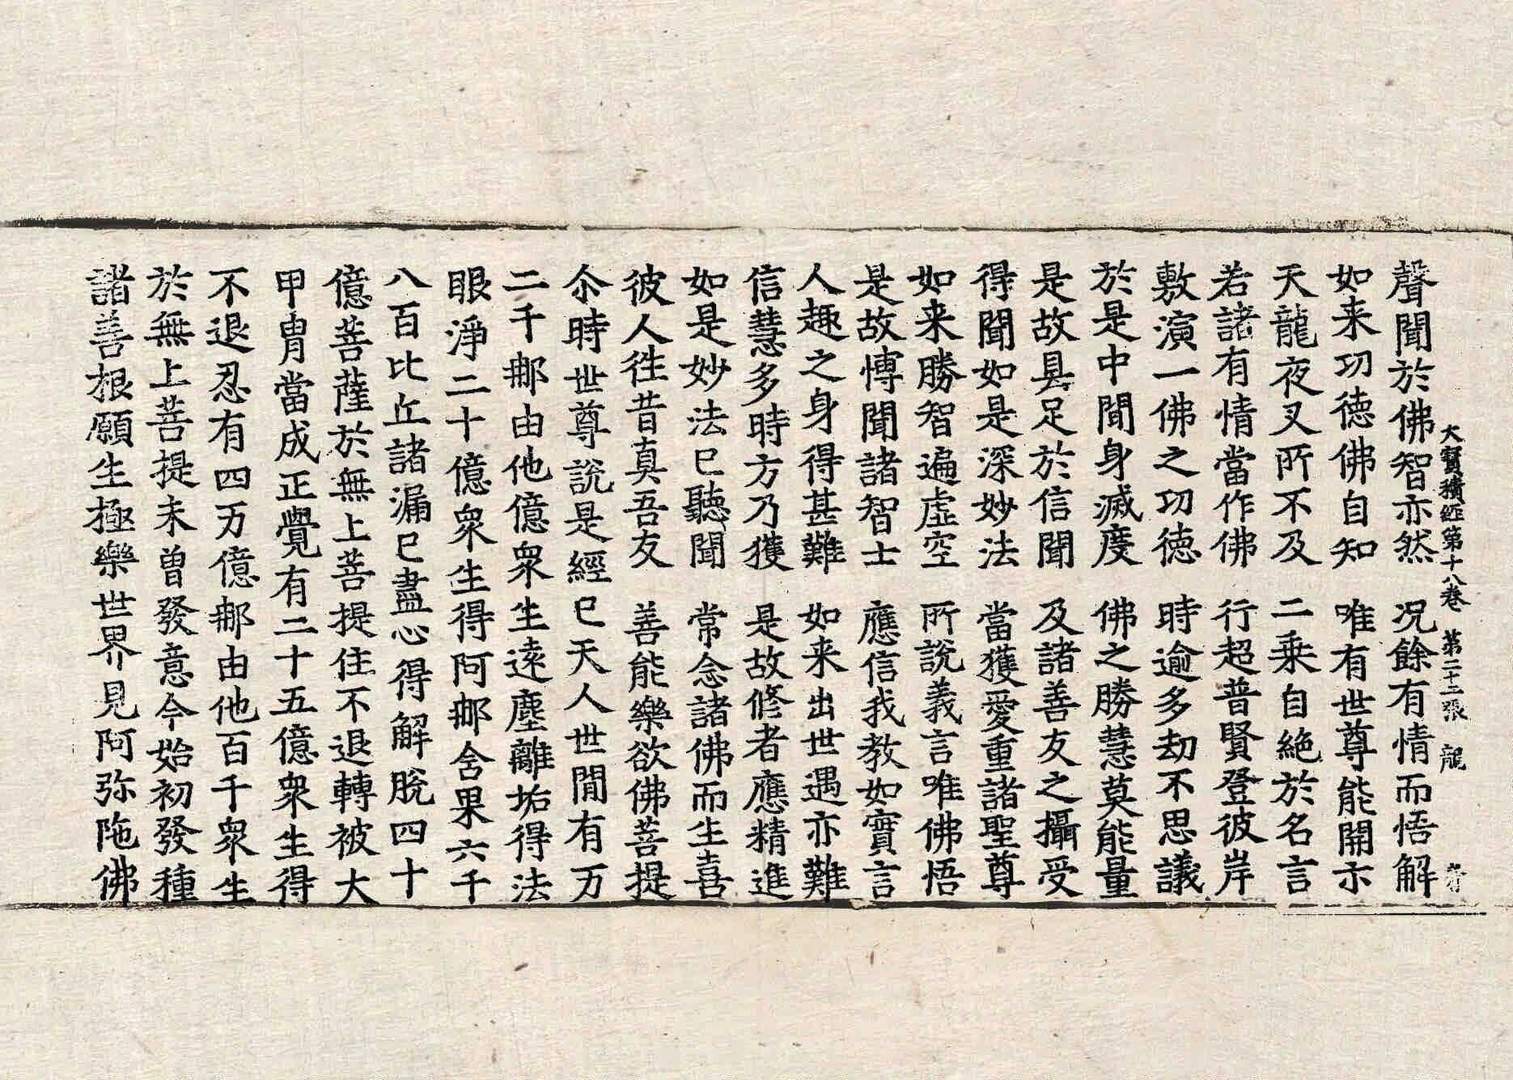 大寶積經第十八卷 第二十二張 龍
聲聞於佛智亦然 況餘有情而悟解
如来功德佛自知 唯有世尊能開示
天龍夜叉所不及 二乘自絶於名言
若諸有情當作佛 行超普賢登彼岸
敷演一佛之功德 時逾多劫不思議
於是中間身滅度 佛之勝慧莫能量
是故具足於信聞 及諸善友之攝受
得聞如是深妙法 當獲愛重諸聖尊
如来勝智遍虚空 所說義言唯佛悟
是故博聞諸智士 應信我教如實言
人趣之身得甚難 如来出世遇亦難
信慧多時方乃獲 是故修者應精進
如是妙法已聽聞 常念諸佛而生喜
彼人徃昔真吾友 善能樂欲佛菩提
尒時世尊說是經已天人世間有万
二千𨚗由他億衆生遠塵離垢得法
眼淨二十億衆生得阿𨚗含果六千
八百比丘諸漏已盡心得解脫四十
億菩薩於無上菩提住不退轉被大
甲冑當成正覺有二十五億衆生得
不退忍有四万億𨚗由他百千衆生
於無上菩提未曾發意今始初發種
諸善根願生極樂世界見阿弥陁佛